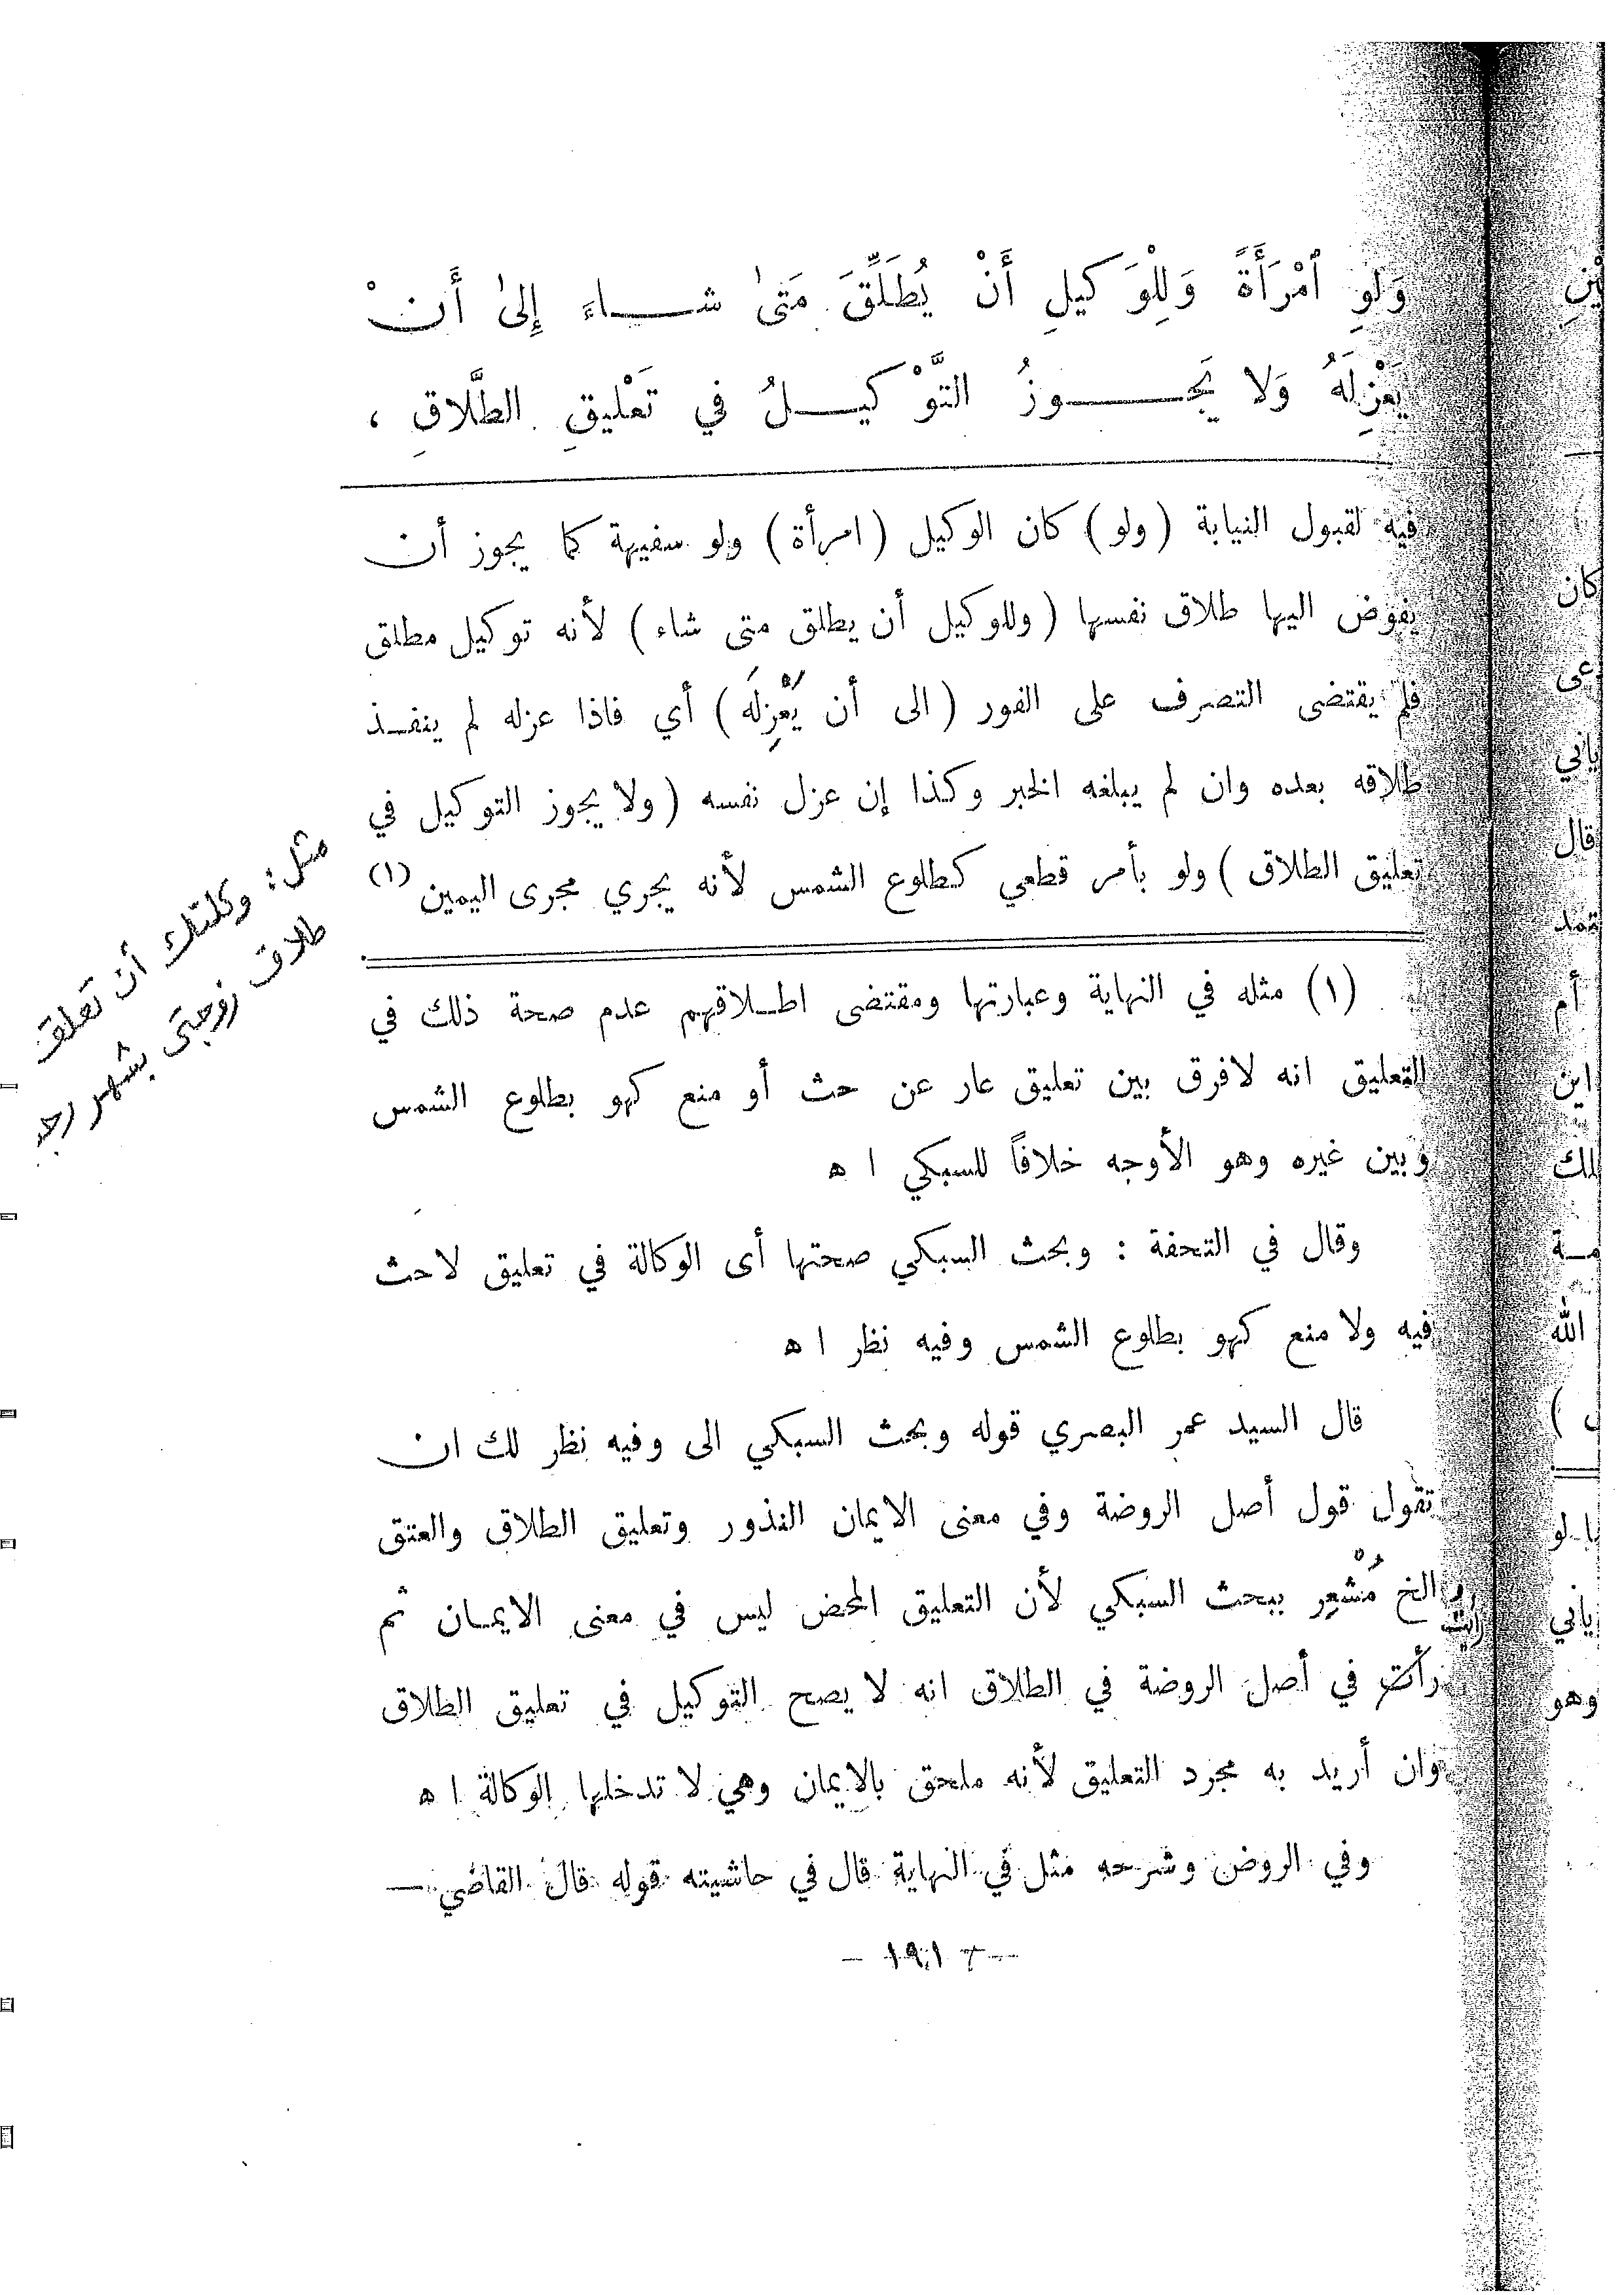 وَلَوِ ٱمْرَأَةً وَلِلْوَكيلِ أَنْ يُطَلِّقَ مَتىٰ شــاءَ إِلىٰ أَنْ
يَعْزِلَهُ وَلا يَجــوزُ التَّوْكيــلُ في تَعْليقِ الطَّلاقِ ،
فيه لقبول النيابة ( ولو ) كان الوكيل ( امرأة ) ولو سفيهة كما يجوز أن
يفوض اليها طلاق نفسها ( وللوكيل أن يطلق متى شاء ) لأنه توكيل مطلق
فلم يقتضى التصرف على الفور ( الى أن يَعْزِلَه ) أي فاذا عزله لم ينفــذ
طلاقه بعده وان لم يبلغه الخبر وكذا إن عزل نفسه ( ولا يجوز التوكيل في
تعليق الطلاق ) ولو بأمر قطعي كطلوع الشمس لأنه يجري مجرى اليمين (١)
مثل: وكلتك أن تعلق
طلاق زوجتي بشهر رجب
(١) مثله في النهاية وعبارتها ومقتضى اطــلاقهم عدم صحة ذلك في
التعليق انه لافرق بين تعليق عار عن حث أو منع كهو بطلوع الشمس
وبين غيره وهو الأوجه خلافاً للسبكي ا ه
وقال في التحفة : وبحث السبكي صحتها أى الوكالة في تعليق لاحث
فيه ولا منع كهو بطلوع الشمس وفيه نظر ا ه
قال السيد عمر البصري قوله وبحث السبكي الى وفيه نظر لك ان
تقول قول أصل الروضة وفي معنى الايمان النذور وتعليق الطلاق والعتق
الخ مُشْعِر ببحث السبكي لأن التعليق المحض ليس في معنى الايمــان ثم
رأيت
رأت في أصل الروضة في الطلاق انه لا يصح التوكيل في تعليق الطلاق
وان أريد به مجرد التعليق لأنه ملحق بالايمان وهي لا تدخلها الوكالة ا ه
وفي الروض وشرحه مثل في النهاية قال في حاشيته قوله قال القاضي —
— ١٩١ —
كان
قال
أم
ابن
الله
وهو